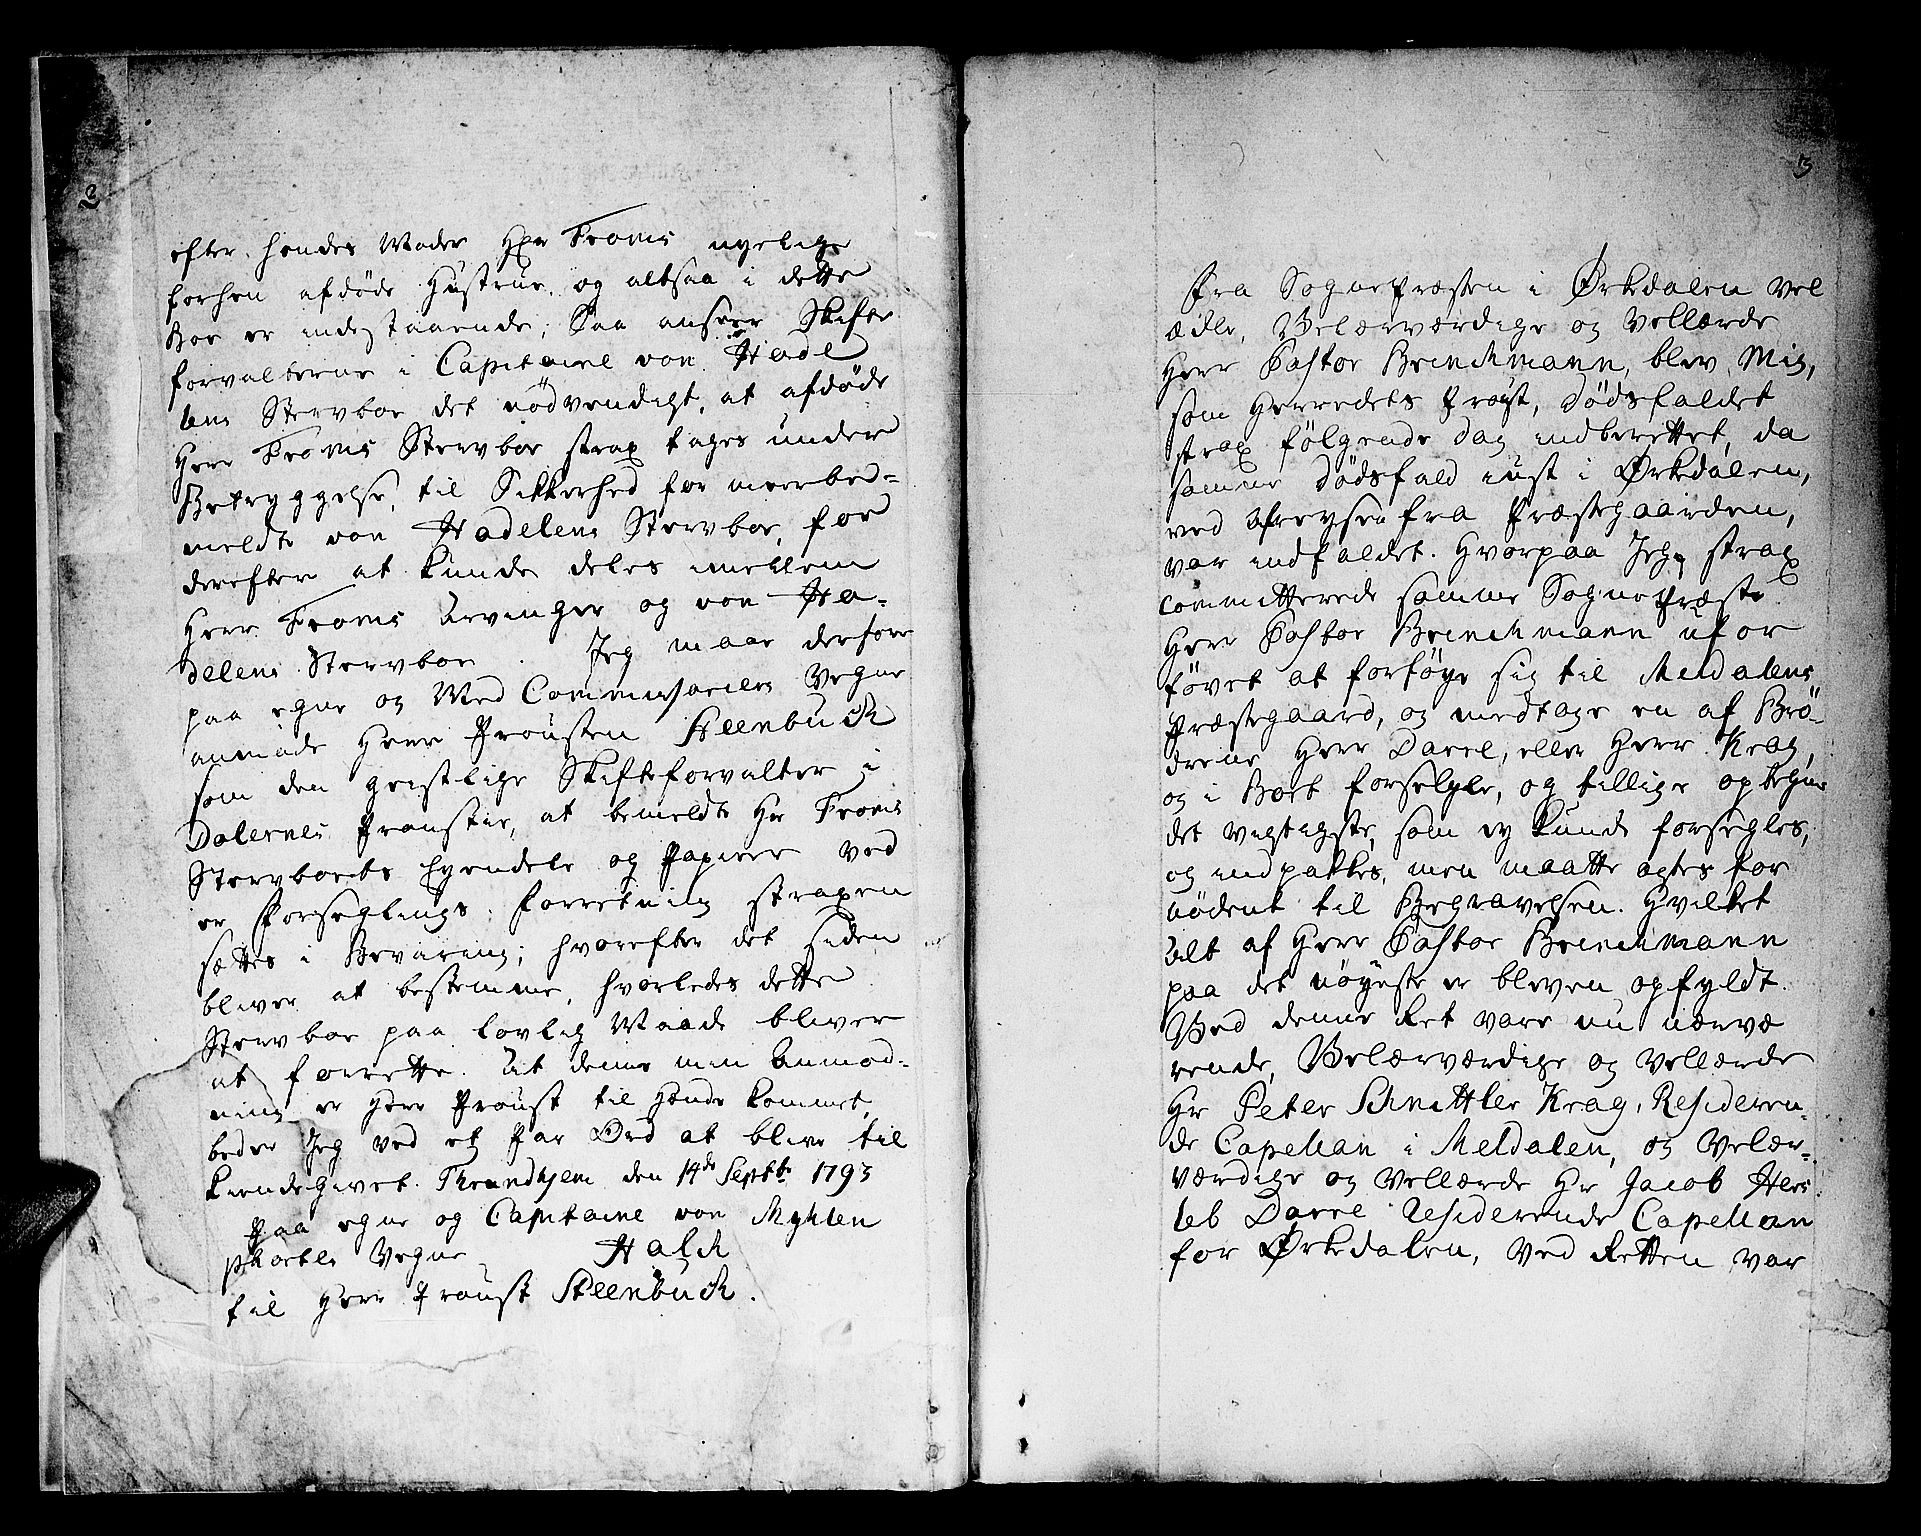 2
efter hendes Moder Hr Froms nyelige
forhen afdöde Hustrue, og altsaa i dette
Boe er indestaaende; Saa anseer Skifte
forvalterne i Capitaine von Hade
lens Stervboe det nödvendigt, at afdöde
Herr Froms Stervboe strax tages under
Betryggelse, til Sikkerhed for meerbe-
meldte von Hadelens Stervboe, for
derefter at kunde deles imellem
Herr Froms Arvinger og von Ha-
delens Stervboe. Jeg maae derfore
paa egne og Med Commissariers Vegne
anmode Herr Provsten Steenbuch
som den geistlige Skifteforvalter i
Dalernes Provstie, at bemeldte Hr Froms
Stervboets Eyendele og Papirer ved
en Forseglings Forretning straxen
sættes i Bevaring; hvorefter det siden
bliver at bestemme, hvorledes dette
Stervboe paa lovlig Maade bliver
at forrette. At denne min Anmod-
ning er Herr Provst til Hende kommet,
beder Jeg ved et Par Ord at blive til
kiendegivet. Throndhjem den 14de Septbr 1793
Paa egne og Capitaine von Myhlen
phorts Vegne Halch
til Herr Provst Steenbuch.
3
Fra SognePræsten i Ørkedalen Vel
ædle, Velærværdige og Vellærde
Herr Pastor Brinchmann, blev Mig,
som Herredets Provst, Dödsfaldet
strax fölgende Dag indberettet, da
samme Dödsfald iust i Ørkedalen,
ved Afreysen fra Præstegaarden,
var indfaldet. Hvorpaa Jeg strax
committerede samme SognePræst
Herr Pastor Brinchmann ufor
tövet at forföye sig til Meldalens
Præstegaard, og medtage en af Brö-
drene Herr Darre, eller Herr Krag,
og i Boet forsegle, og tillige optegne
det vigtigste, som ey kunde forsegles,
og indpakkes, men maatte agtes for
nödent til Begravelsen. Hvilket
alt af Herr Pastor Brinchmann
paa det nöyeste er bleven opfyldt.
Ved denne Ret vare nu nærvæ
rende, Velærværdige og Vellærde
Hr Peter Schnittler Krag, Resideren-
de Capellan i Meldalen, og Velær-
værdige og Vellærde Hr Jacob Hers
leb Darre Residerende Capellan
for Ørkedalen, Ved Retten var